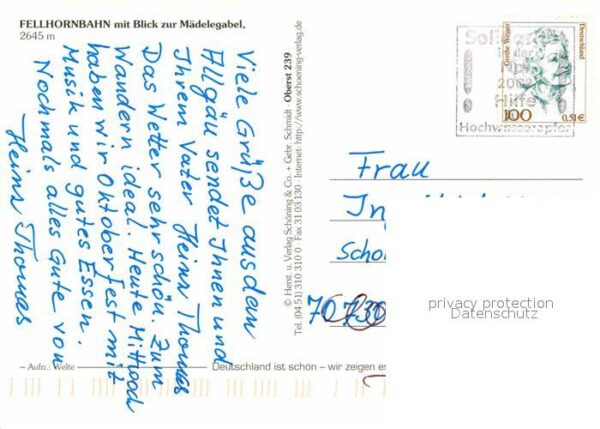 FELLHORNBAHN mit Blick zur Mädelegabel,
2645 m
Viele Grüße aus dem
Allgäu sendet Ihnen und
Ihrem Vater Heinr Thomas
Das Wetter sehr schön. Zum
Wandern ideal. Heute Mittwoch
haben wir Oktoberfest mit
Musik und gutes Essen.
Nochmals alles Gute von
Heinr Thomas
– Aufn.: Welte
Deutschland ist schön – wir zeigen es
© Herst. u. Verlag Schöning & Co. + Gebr. Schmidt · Oberst 239
Tel. (04 51) 310 310 0 · Fax 31 03 130 · Internet: http://www.schoening-verlag.de
Grethe Weiser
Deutschland
100
0,51 €
in der
2002
Hilfe
Hochwasseropfer
Frau
In
Scho
70730
privacy protection
Datenschutz